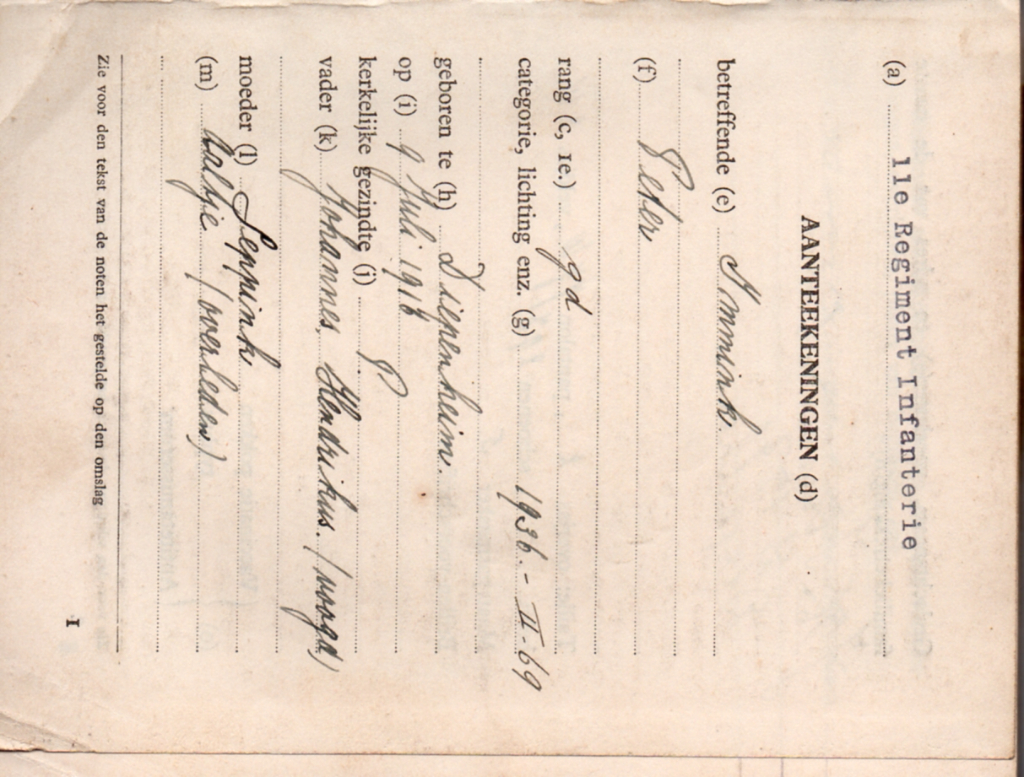 11e Regiment Infanterie
(a)
AANTEEKENINGEN (d)
betreffende (e) Immink.
(f) Peter
rang (c, 1e.) gd
categorie, lichting enz. (g) 1936.-II-69
geboren te (h) Diepenheim.
op (i) 9 Juli 1916
kerkelijke gezindte (j) P
vader (k) Johannes, Hendrikus. (voogd)
moeder (l) Leppink
(m) Aaltje (overleden)
Zie voor den tekst van de noten het gestelde op den omslag
1